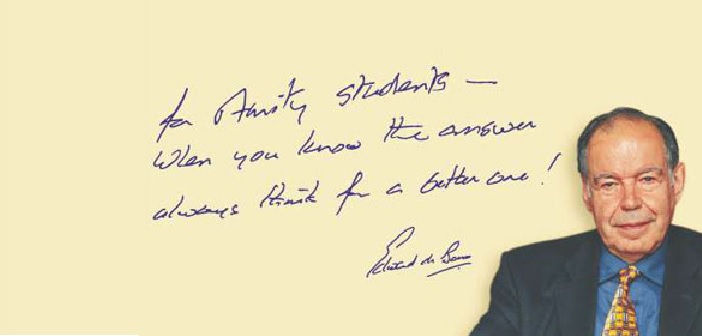 for Amity students –
When you know the answer
always think for a better one!
Edward de Bono